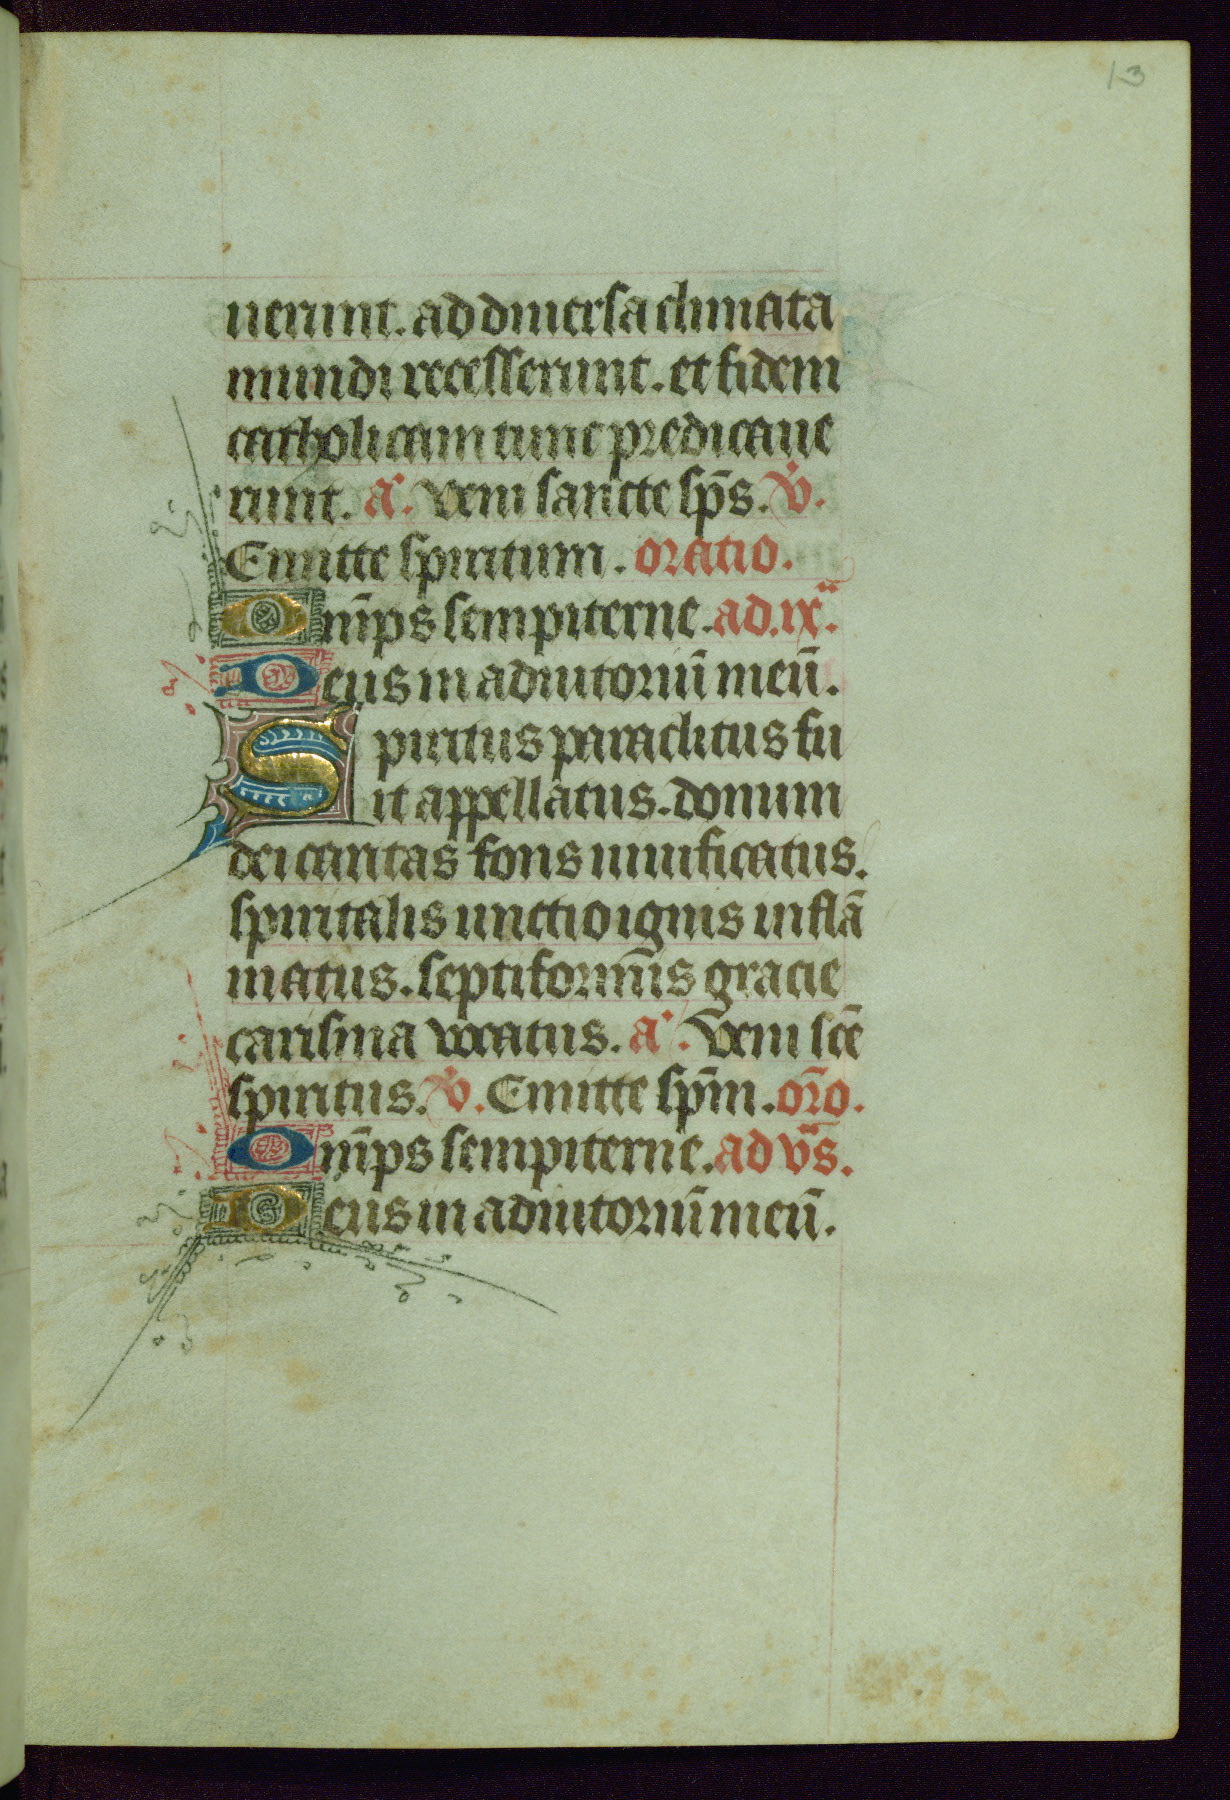 13
uerunt. ad diuersa climata
mundi recesserunt. et fidem
catholicam tunc predicaue
runt. a᷑. Veni sancte sp̄s. v̇.
Emitte spiritum. oratio.
Om̄ps sempiterne. ad. ix.
Deus in adiutoriū meū.
Spiritus paraclitus fu
it appellatus. donum
dei caritas fons uiuificatus.
spiritalis unctio ignis inflā
matus. septiformīs gracie
carisma vocatus. a᷑. Veni scē
spiritus. v̇. Emitte sp̄m. or̄o.
Om̄ps sempiterne. ad v̄s.
Deus in adiutoriū meū.